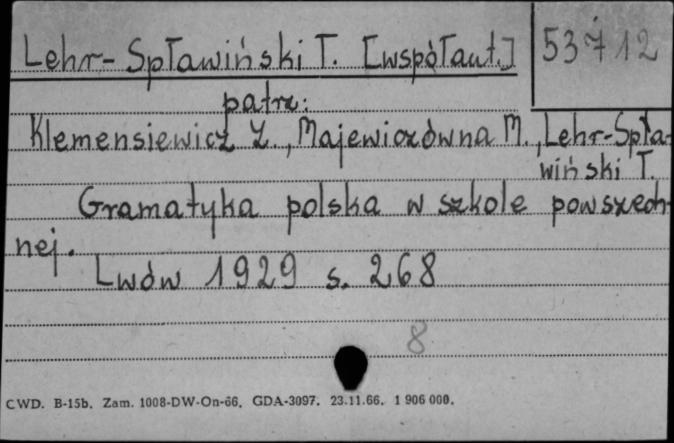 Lehr-Spławiński T. [współaut.]
53712
patrz:
Klemensiewicz Z., Majewiczówna M., Lehr-Spła-
wiński T.
Gramatyka polska w szkole powszech-
nej.
Lwów 1929 s. 268
8
CWD. B-15b. Zam. 1008-DW-On-66. GDA-3097. 23.11.66. 1 906 000.